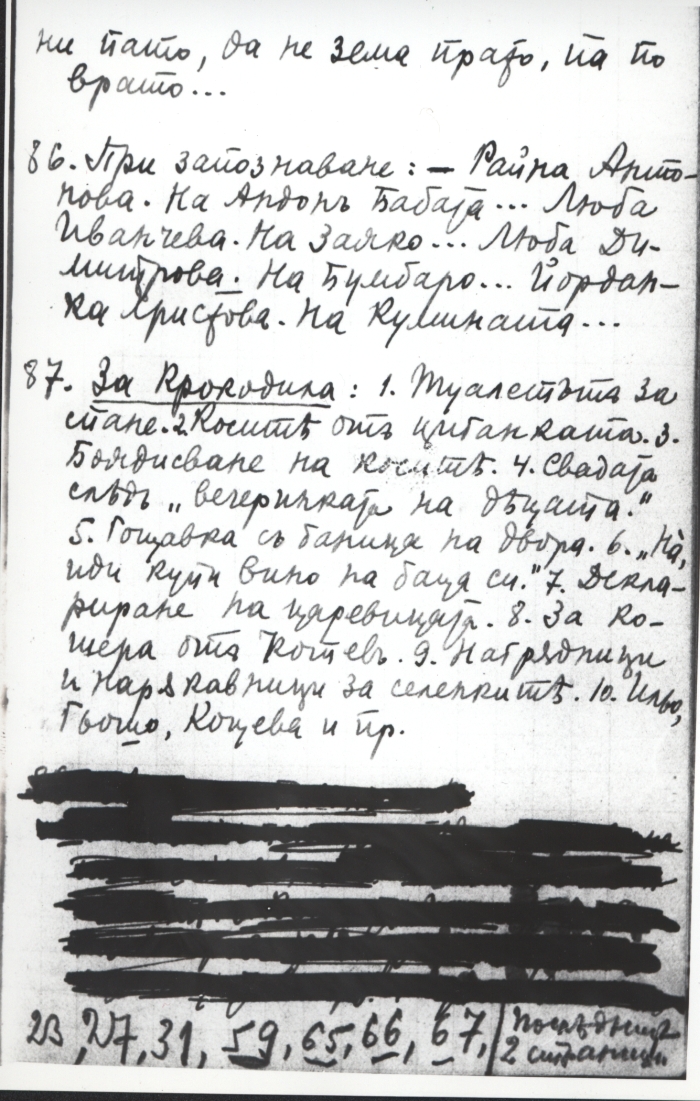 ни пато, да не зема прато, па по
врато...
86. При запознаване: — Райна Анто-
нова. На Андонъ Бабата... Люба
Иванчева. На Заяко... Люба Ди-
митрова. На Бумбаро... Йордан-
ка Христова. На Кумината...
87. За Крокодила: 1. Туалетътъ за
спане. 2. Коситѣ отъ циганката. 3.
Боядисване на коситѣ. 4. Свадата
слѣдъ „вечеринката на дѣцата."
5. Гощавка съ баница на двора. 6. „На,
иди купи вино на баща си." 7. Декла-
риране на царевицата. 8. За ко-
шера отъ Котевъ. 9. Нагрядници
и наряквници за селенкитѣ. 10. Ильо,
Гьошо, Коцева и пр.
23, 27, 31, 59, 65, 66, 67,
последнитѣ
2 страници